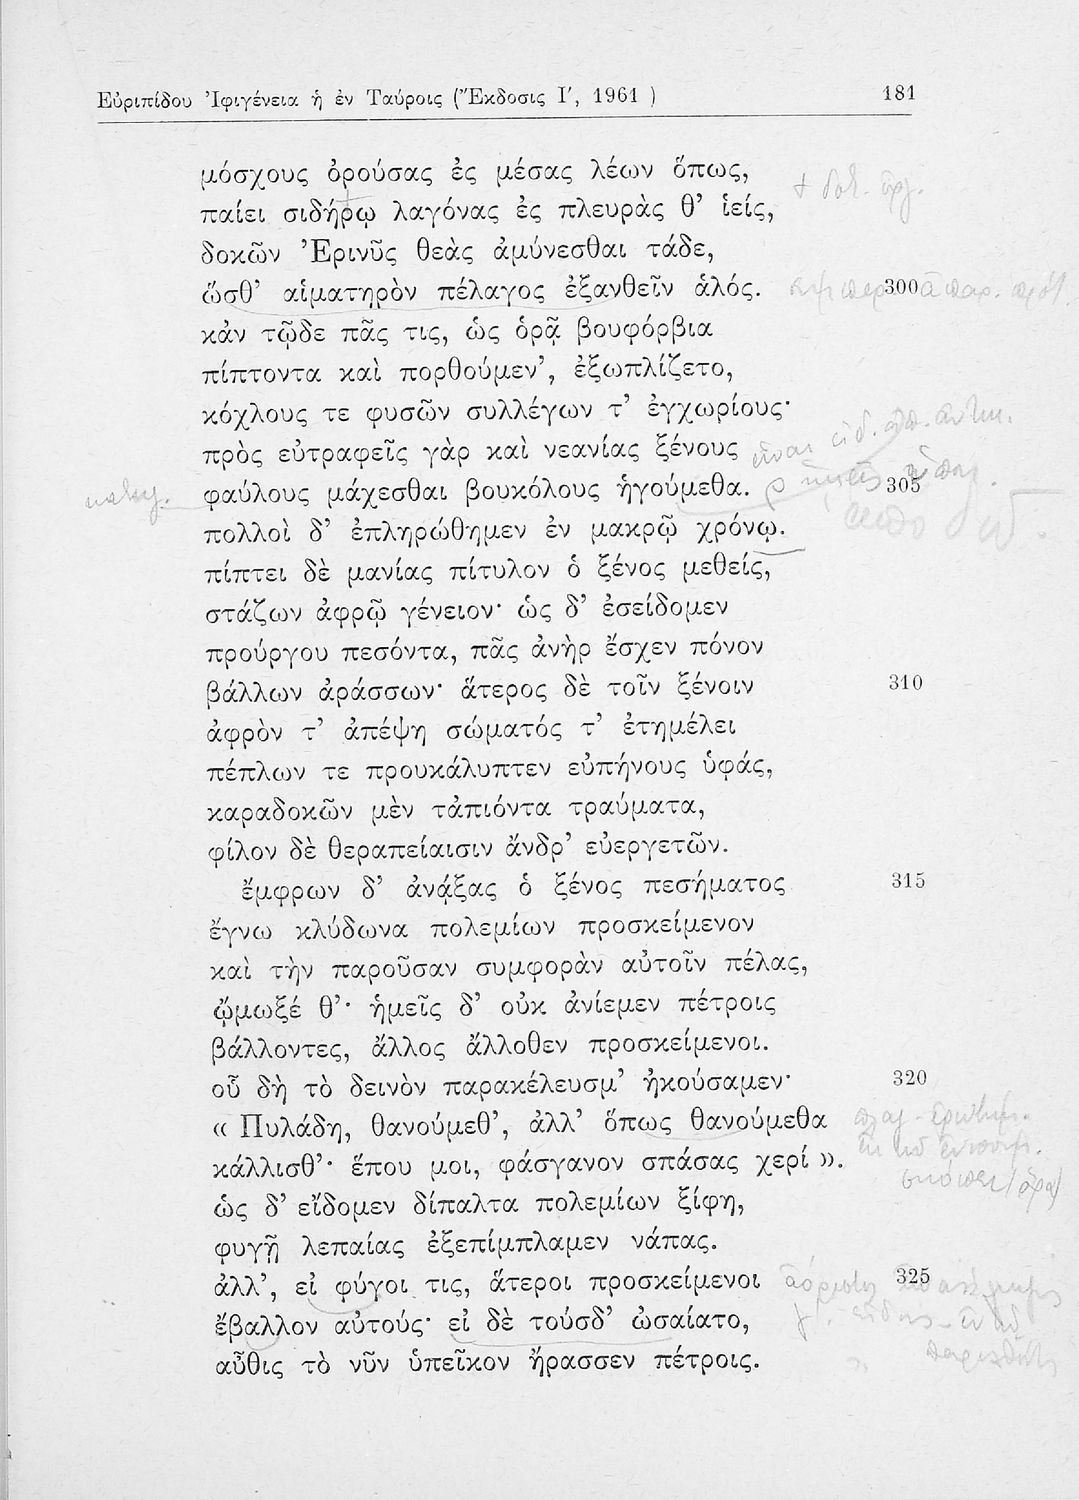 Εὐριπίδου Ἰφιγένεια ἡ ἐν Ταύροις (Ἔκδοσις Ι′, 1961 ) 181
μόσχους ὀρούσας ἐς μέσας λέων ὅπως,
παίει σιδήρῳ λαγόνας ἐς πλευρὰς θ’ ἱείς,
δοκῶν Ἐρινῦς θεὰς ἀμύνεσθαι τάδε,
ὥσθ’ αἱματηρὸν πέλαγος ἐξανθεῖν ἁλός. 300
κἀν τῷδε πᾶς τις, ὡς ὁρᾷ βουφόρβια
πίπτοντα καὶ πορθούμεν’, ἐξωπλίζετο,
κόχλους τε φυσῶν συλλέγων τ’ ἐγχωρίους·
πρὸς εὐτραφεῖς γὰρ καὶ νεανίας ξένους
φαύλους μάχεσθαι βουκόλους ἡγούμεθα. 305
πολλοὶ δ’ ἐπληρώθημεν ἐν μακρῷ χρόνῳ.
πίπτει δὲ μανίας πίτυλον ὁ ξένος μεθείς,
στάζων ἀφρῷ γένειον· ὡς δ’ ἐσείδομεν
προύργου πεσόντα, πᾶς ἀνὴρ ἔσχεν πόνον
βάλλων ἀράσσων· ἅτερος δὲ τοῖν ξένοιν 310
ἀφρὸν τ’ ἀπέψη σώματός τ’ ἐτημέλει
πέπλων τε προυκάλυπτεν εὐπήνους ὑφάς,
καραδοκῶν μὲν τἀπιόντα τραύματα,
φίλον δὲ θεραπείαισιν ἄνδρ’ εὐεργετῶν.
ἔμφρων δ’ ἀνᾴξας ὁ ξένος πεσήματος 315
ἔγνω κλύδωνα πολεμίων προσκείμενον
καὶ τὴν παροῦσαν συμφορὰν αὐτοῖν πέλας,
ᾤμωξέ θ’· ἡμεῖς δ’ οὐκ ἀνίεμεν πέτροις
βάλλοντες, ἄλλος ἄλλοθεν προσκείμενοι.
οὗ δὴ τὸ δεινὸν παρακέλευσμ’ ἠκούσαμεν· 320
« Πυλάδη, θανούμεθ’, ἀλλ’ ὅπως θανούμεθα
κάλλισθ’· ἕπου μοι, φάσγανον σπάσας χερί ».
ὡς δ’ εἴδομεν δίπαλτα πολεμίων ξίφη,
φυγῇ λεπαίας ἐξεπίμπλαμεν νάπας.
ἀλλ’, εἰ φύγοι τις, ἅτεροι προσκείμενοι 325
ἔβαλλον αὐτούς· εἰ δὲ τούσδ’ ὠσαίατο,
αὖθις τὸ νῦν ὑπεῖκον ἤρασσεν πέτροις.